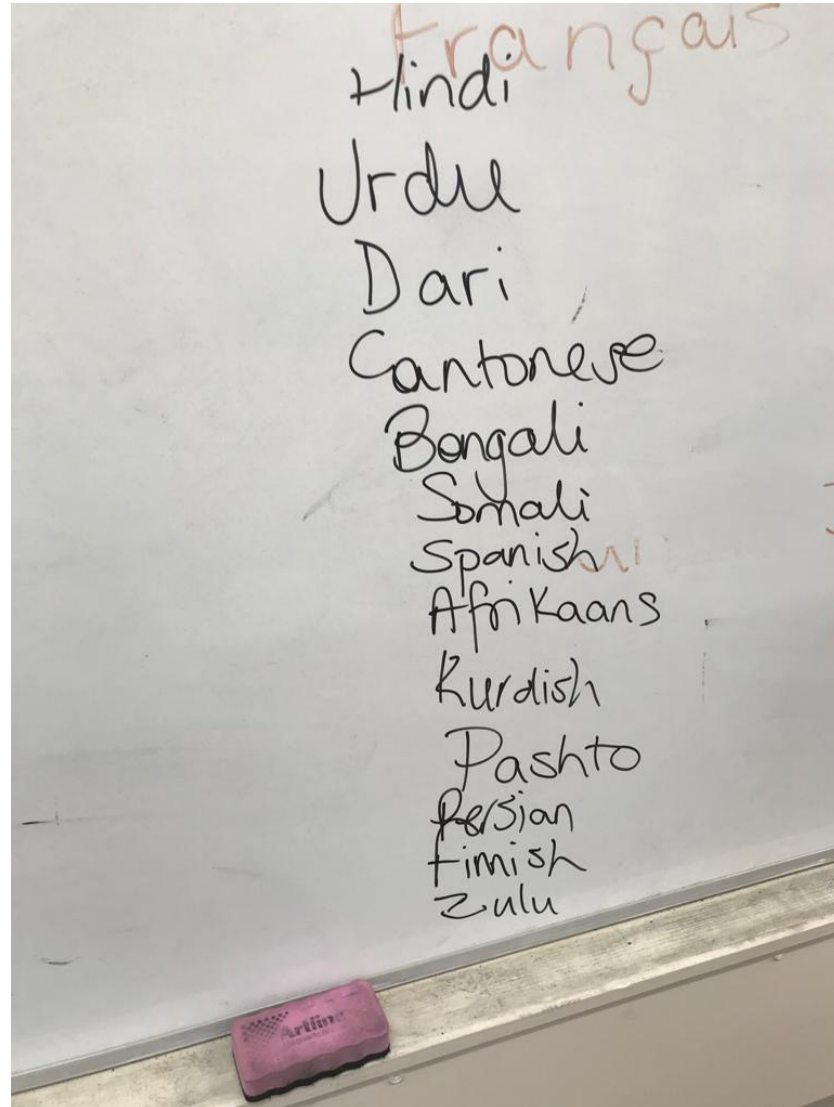 français
Hindi
Urdu
Dari
Cantonese
Bengali
Somali
Spanish
Afrikaans
Kurdish
Pashto
Persian
Finnish
Zulu
Artline